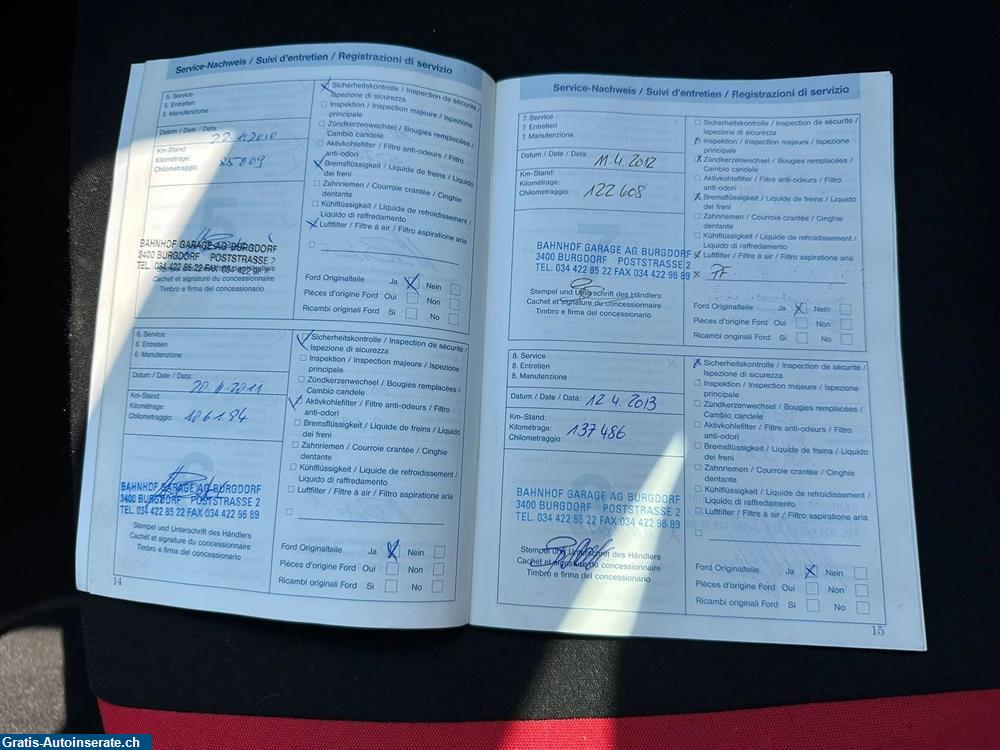 Service-Nachweis / Suivi d'entretien / Registrazioni di servizio
5. Service
5. Entretien
5. Manutenzione
Datum / Date / Data:
Km-Stand:
Kilométrage:
Chilometraggio: 85009
BAHNHOF GARAGE AG BURGDORF
3400 BURGDORF POSTSTRASSE 2
TEL. 034 422 85 22 FAX 034 422
Cachet et signature du concessionnaire
Timbro e firma del concessionario
Sicherheitskontrolle / Inspection de sécurité /
Ispezione di sicurezza
Inspektion / Inspection majeure / Ispezione
principale
Zündkerzenwechsel / Bougies remplacées /
Cambio candele
Aktivkohlefilter / Filtre anti-odeurs / Filtro
anti-odori
Bremsflüssigkeit / Liquide de freins / Liquido
dei freni
Zahnriemen / Courroie crantée / Cinghie
dentante
Kühlflüssigkeit / Liquide de refroidissement /
Liquido di raffredamento
Luftfilter / Filtre à air / Filtro aspiratione aria
Ford Originalteile Ja X Nein
Pièces d'origine Ford Oui Non
Ricambi originali Ford Si No
6. Service
6. Entretien
6. Manutenzione
Datum / Date / Data: 20.4.2011
Km-Stand:
Kilométrage:
Chilometraggio: 106184
BAHNHOF GARAGE AG BURGDORF
3400 BURGDORF POSTSTRASSE 2
TEL. 034 422 85 22 FAX 034 422 96 89
Stempel und Unterschrift des Händlers
Cachet et signature du concessionnaire
Timbro e firma del concessionario
Sicherheitskontrolle / Inspection de sécurité /
Ispezione di sicurezza
Inspektion / Inspection majeure / Ispezione
principale
Zündkerzenwechsel / Bougies remplacées /
Cambio candele
Aktivkohlefilter / Filtre anti-odeurs / Filtro
anti-odori
Bremsflüssigkeit / Liquide de freins / Liquido
dei freni
Zahnriemen / Courroie crantée / Cinghie
dentante
Kühlflüssigkeit / Liquide de refroidissement /
Liquido di raffredamento
Luftfilter / Filtre à air / Filtro aspiratione aria
Ford Originalteile Ja X Nein
Pièces d'origine Ford Oui Non
Ricambi originali Ford Si No
14
Service-Nachweis / Suivi d'entretien / Registrazioni di servizio
7. Service
7. Entretien
7. Manutenzione
Datum / Date / Data: 11.4.2012
Km-Stand:
Kilométrage:
Chilometraggio: 122608
BAHNHOF GARAGE AG BURGDORF
3400 BURGDORF POSTSTRASSE 2
TEL. 034 422 85 22 FAX 034 422 96 89
Stempel und Unterschrift des Händlers
Cachet et signature du concessionnaire
Timbro e firma del concessionario
Sicherheitskontrolle / Inspection de sécurité /
Ispezione di sicurezza
Inspektion / Inspection majeure / Ispezione
principale
Zündkerzenwechsel / Bougies remplacées /
Cambio candele
Aktivkohlefilter / Filtre anti-odeurs / Filtro
anti-odori
Bremsflüssigkeit / Liquide de freins / Liquido
dei freni
Zahnriemen / Courroie crantée / Cinghie
dentante
Kühlflüssigkeit / Liquide de refroidissement /
Liquido di raffredamento
Luftfilter / Filtre à air / Filtro aspiratione aria
PF
Ford Originalteile Ja X Nein
Pièces d'origine Ford Oui Non
Ricambi originali Ford Si No
8. Service
8. Entretien
8. Manutenzione
Datum / Date / Data: 12.4.2013
Km-Stand:
Kilométrage:
Chilometraggio: 137486
BAHNHOF GARAGE AG BURGDORF
3400 BURGDORF POSTSTRASSE 2
TEL. 034 422 85 22 FAX 034 422 96 89
Stempel und Unterschrift des Händlers
Cachet et signature du concessionnaire
Timbro e firma del concessionario
Sicherheitskontrolle / Inspection de sécurité /
Ispezione di sicurezza
Inspektion / Inspection majeure / Ispezione
principale
Zündkerzenwechsel / Bougies remplacées /
Cambio candele
Aktivkohlefilter / Filtre anti-odeurs / Filtro
anti-odori
Bremsflüssigkeit / Liquide de freins / Liquido
dei freni
Zahnriemen / Courroie crantée / Cinghie
dentante
Kühlflüssigkeit / Liquide de refroidissement /
Liquido di raffredamento
Luftfilter / Filtre à air / Filtro aspiratione aria
Ford Originalteile Ja X Nein
Pièces d'origine Ford Oui Non
Ricambi originali Ford Si No
15
Gratis-Autoinserate.ch